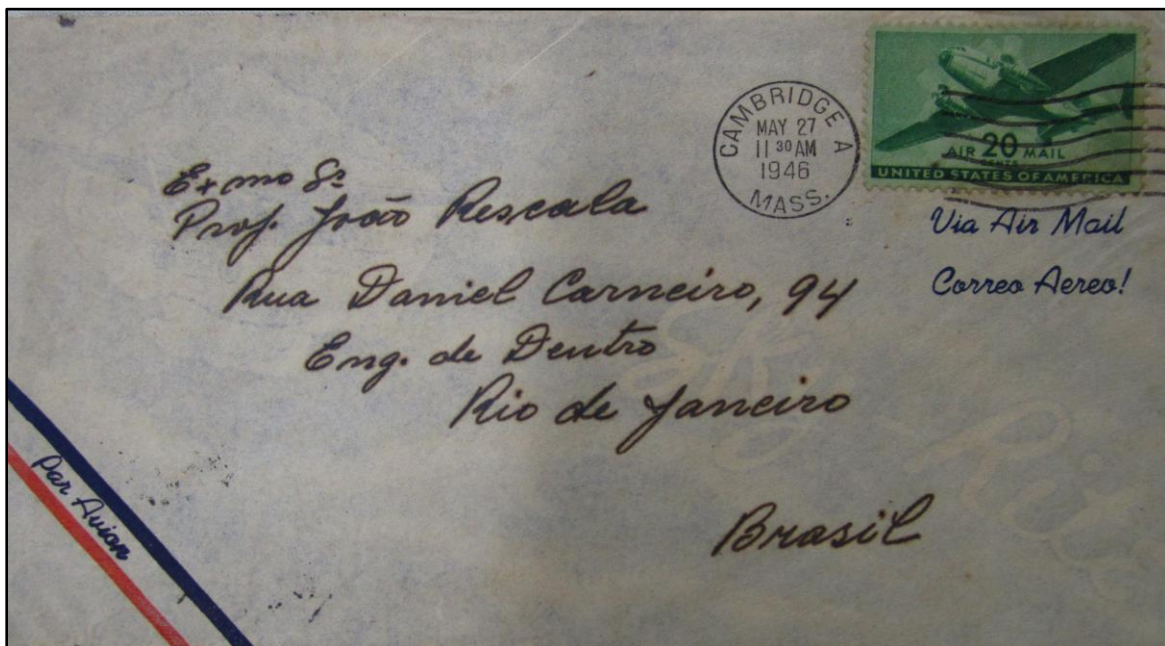 CAMBRIDGE A
MAY 27
11 30 AM
1946
MASS.
AIR 20 MAIL
CENTS
UNITED STATES OF AMERICA
Via Air Mail
Correo Aereo!
Exmo Sr
Prof. João Rescala
Rua Daniel Carneiro, 94
Eng. de Dentro
Rio de Janeiro
Brasil
Par Avion